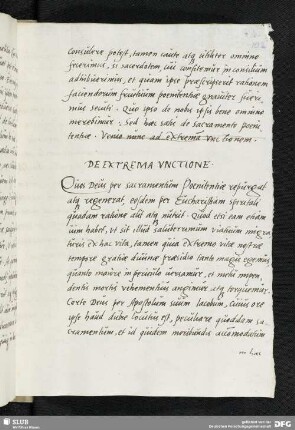 considere potest, tamen caute atq[ue] utiliter omnino
fecerimus, si sacerdotem, cui confitemur in consilium
adhibuerimus, et quam ipse præscripserit rationem
faciendorum fructuum poenitentiæ graviter fueri-
mus secuti. Quo ipso de nobis ipsa bene omnino
merebimur. Sed hæc satis de sacramento poeni-
tentiæ. Venio nunc ad extremam unctionem.
DE EXTREMA VNCTIONE.
Quos Deus per sacramentum Poenitentiæ repurgat
atq[ue] regenerat, eosdem per Eucharistiam spiritali
quadam ratione alit atq[ue] nutrit. Quod etsi eam etiam
vim habet, ut sit illud saluberrimum viaticum migra-
turis ex hac vita, tamen quia extremo vitæ nostræ
tempore gratiæ divinæ præsidio tanto magis egemus
quanto maiore in periculo versamur, et metu impen-
dentis mortis vehementius angimur atq[ue] torquemur,
Certe Deus per Apostolum suum Iacobum, cuius ore
ipse haud dubie locutus est, peculiare quoddam sa-
cramentum, et id quidem moribundis accomodatum
in hac
SLUB
DFG